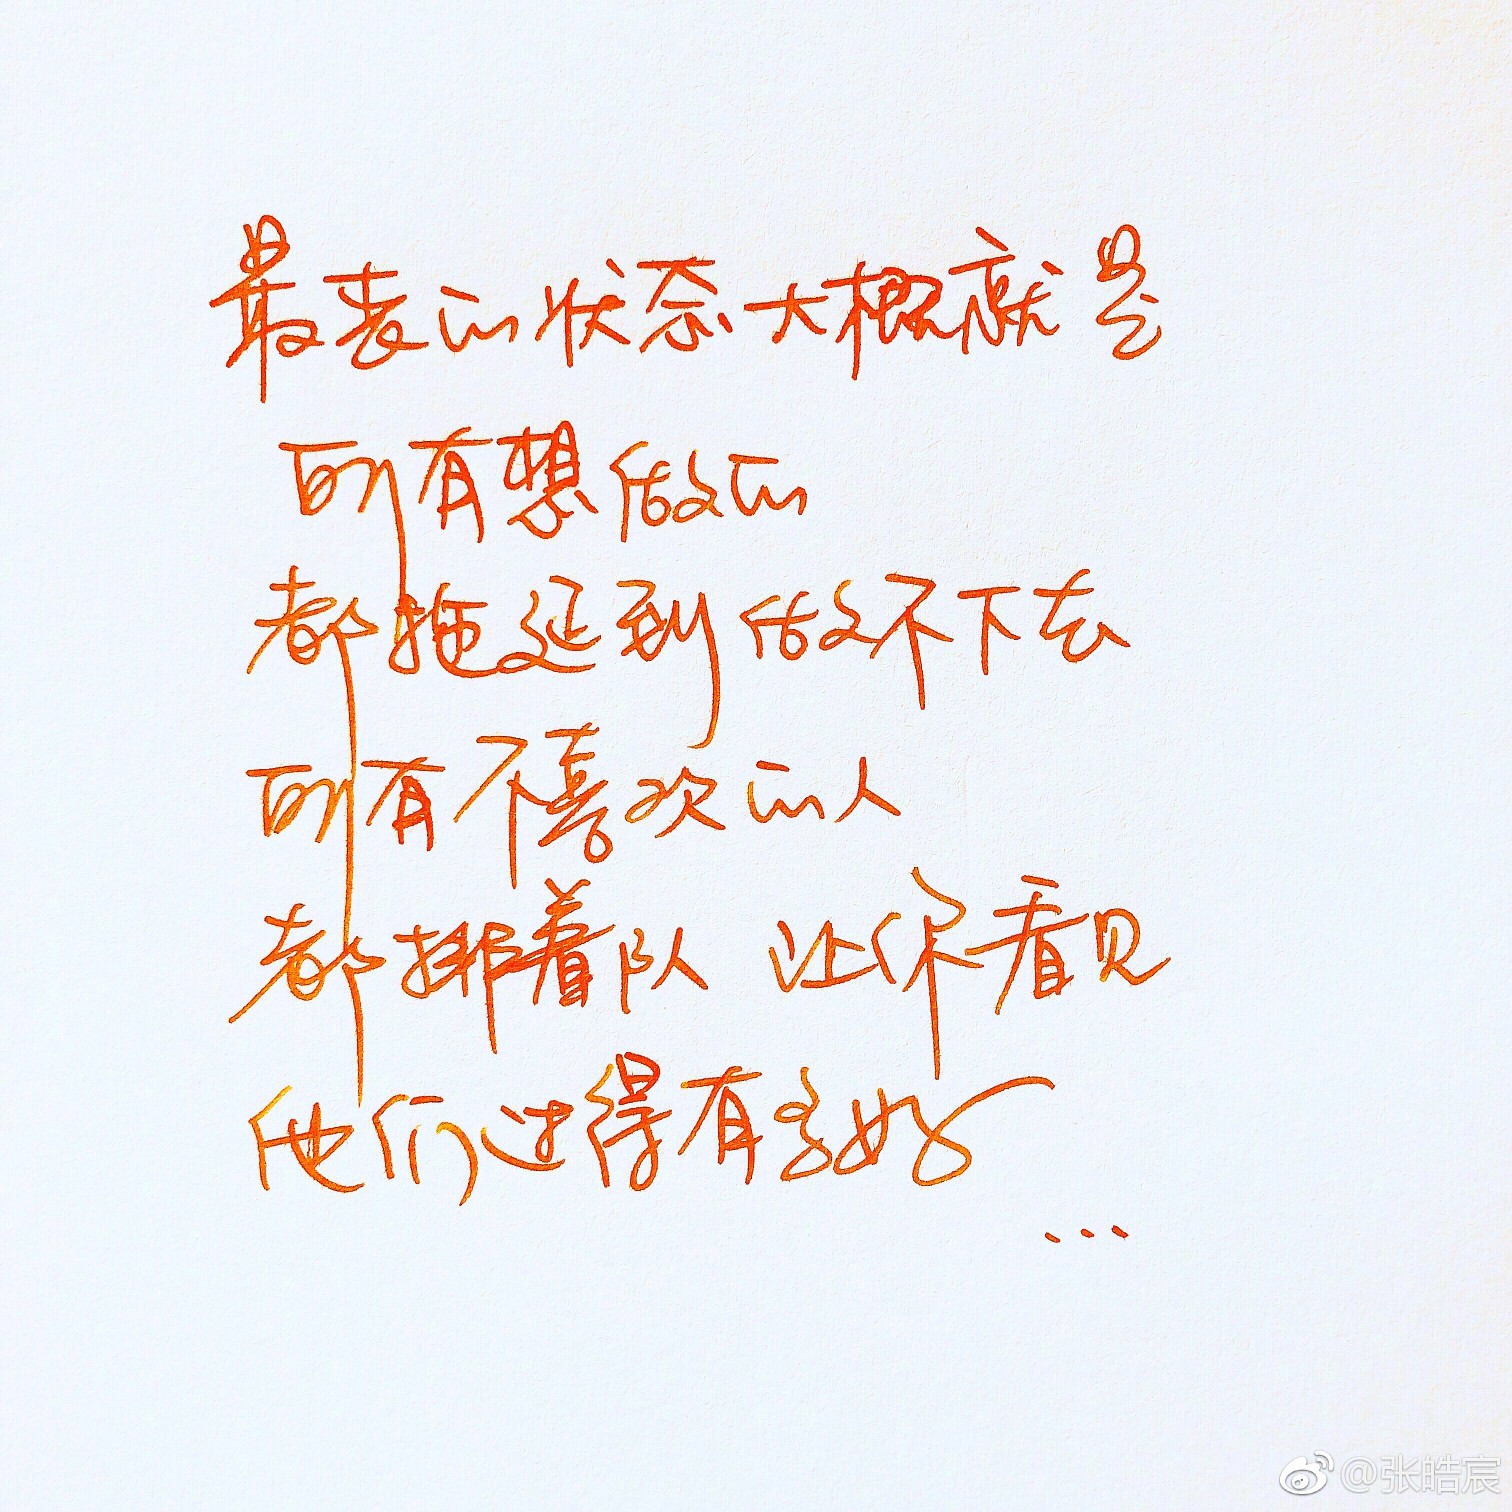 最丧的状态大概就是
所有想做的
都拖延到做不下去
所有不喜欢的人
都排着队 让你看见
他们过得有多好
...
@张皓宸